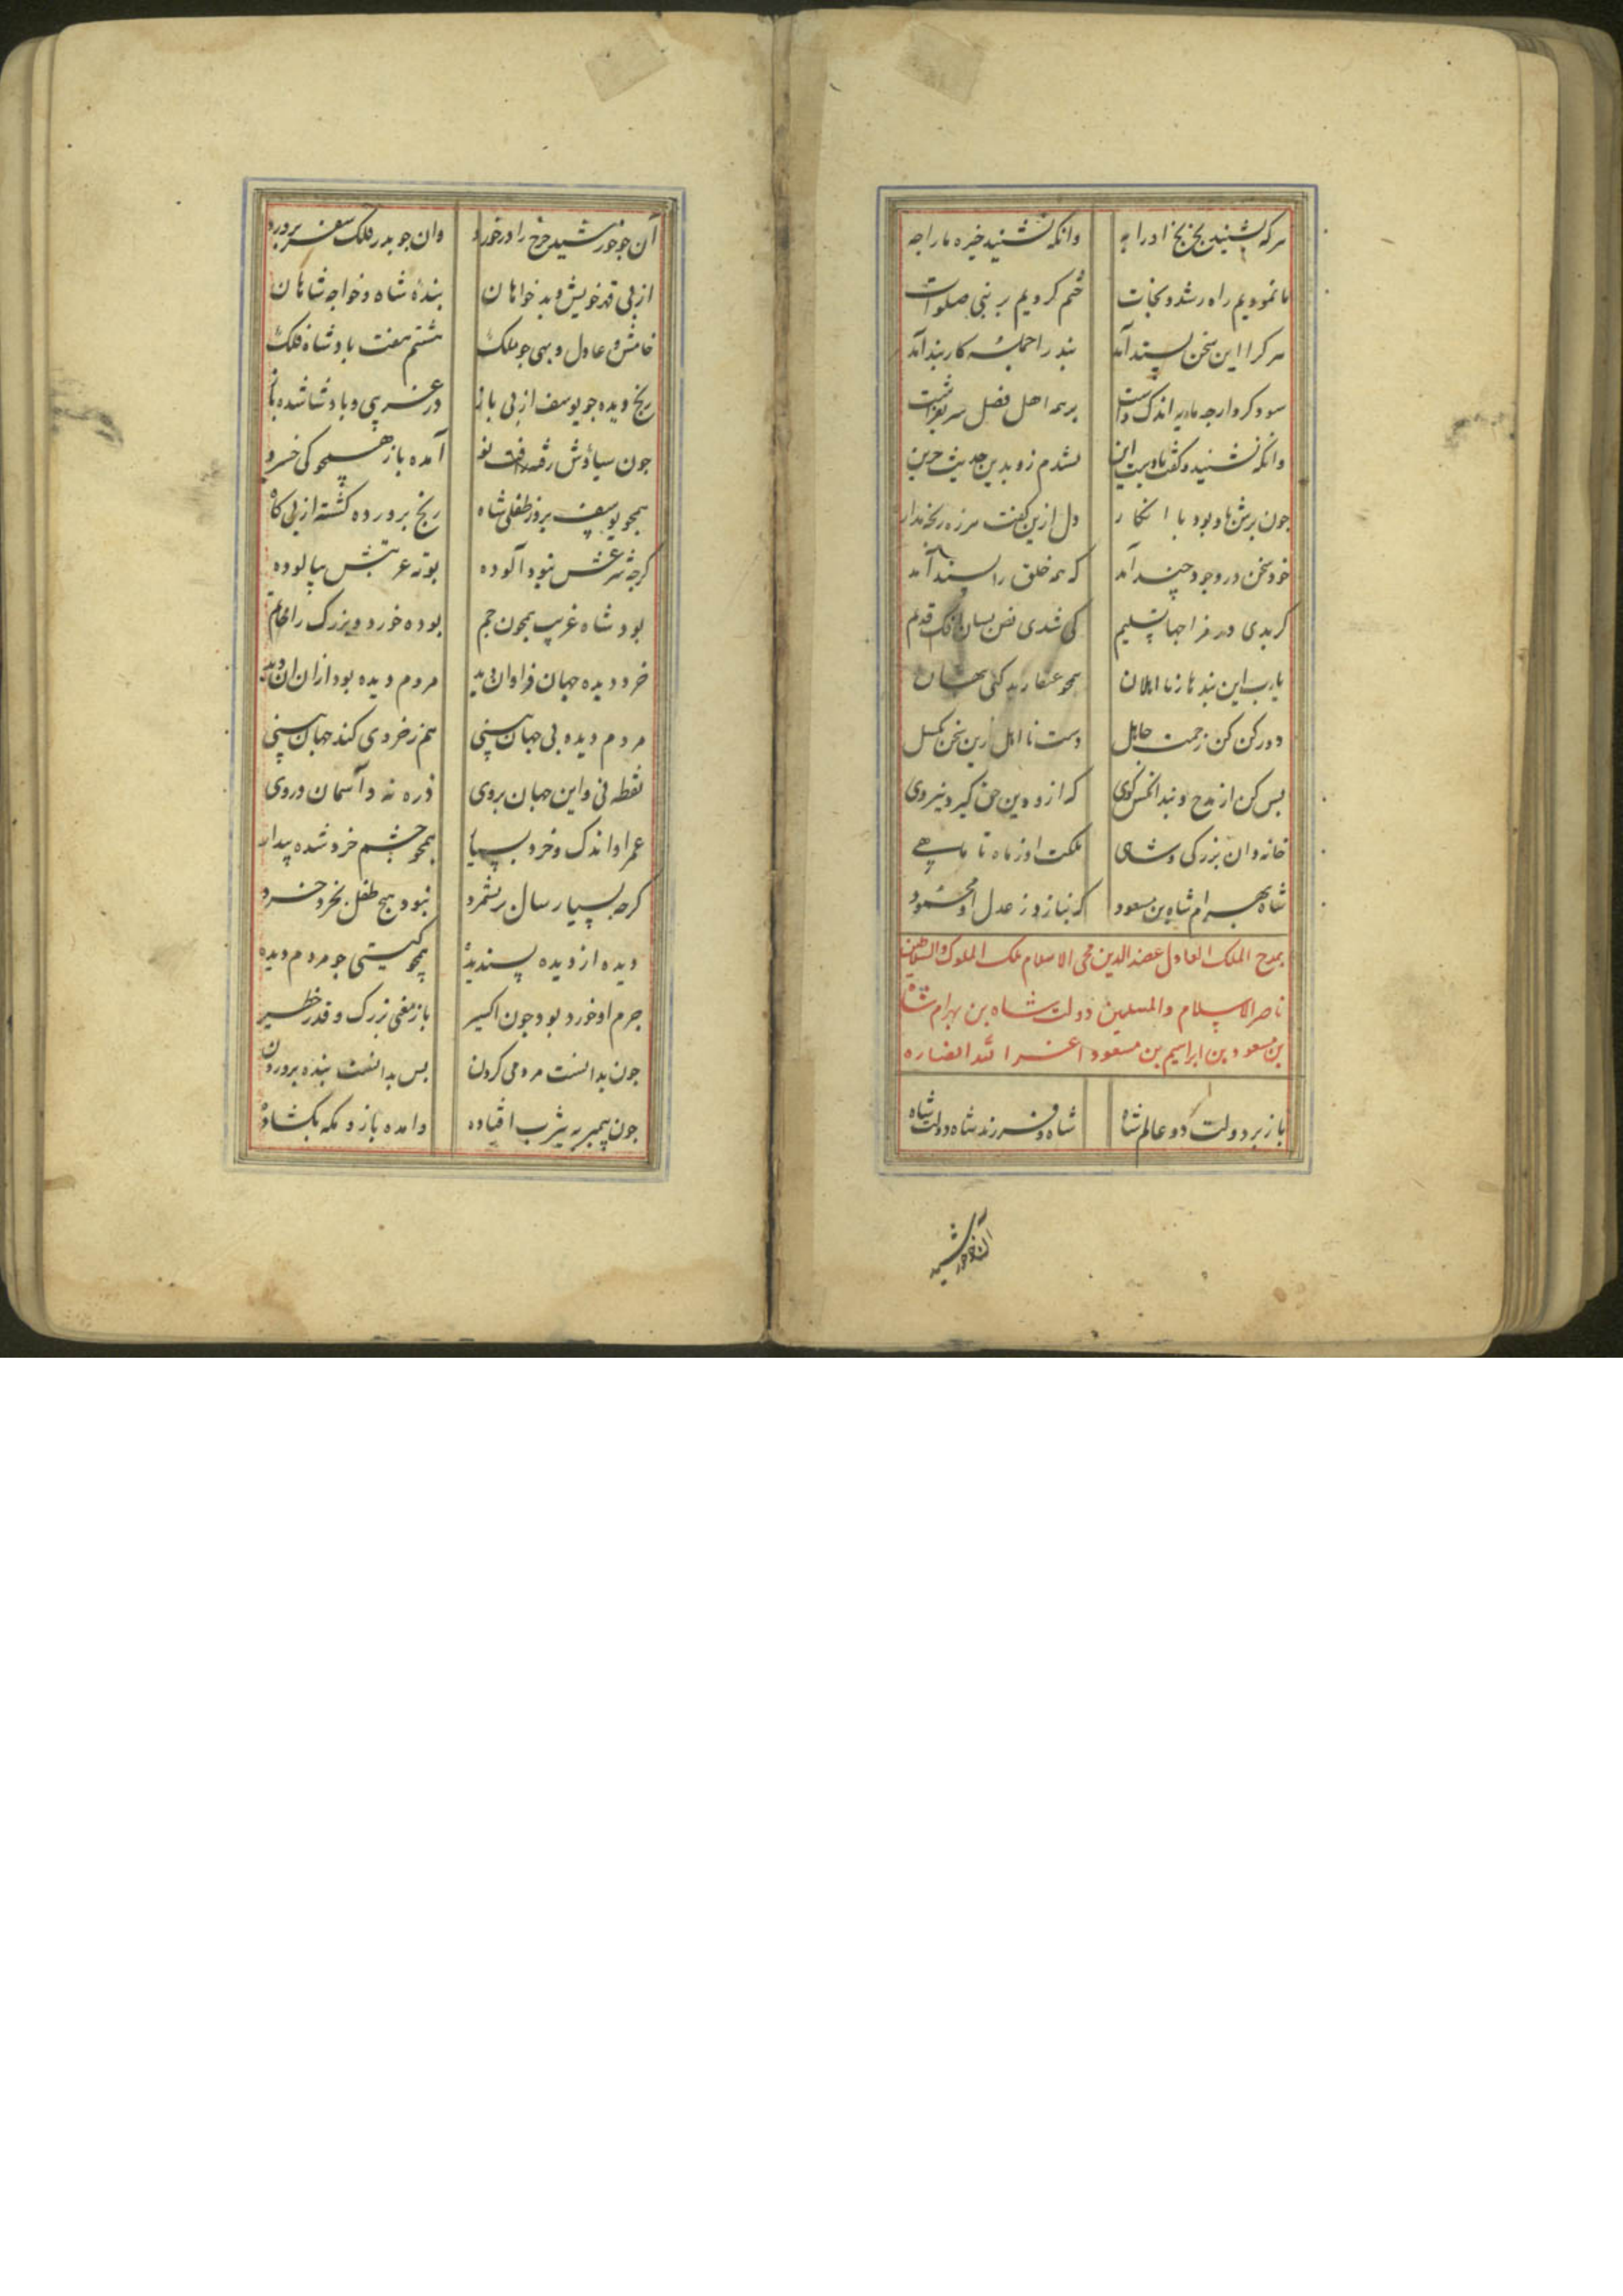 هرکه بشنید بخ بخ اورا به وانکه نشنید خیره ما را چه
ما نمودیم راه رشد و نجات ختم کردیم بر نبی صلوات
هرکرا این سخن پسند آمد پند را جمله کاربند آمد
سود کرد ارچه مایه اندک داشت بر همه اهل فضل سر بفراشت
وانکه نشنید و کفت این نشدم زو بدین حدیث حزین
جون برش باد بود با انکار دل ازین کفت هرزه رنجه مدار
خود سخن در وجود چند آمد که همه خلق را پسند آمد
کی شدی
یارب این پند ها ز نا اهلان همچو عنقا
دور کن کن زحمت جاهل دست نا اهل زین سخن بکسل
بس کن از مدح و پند کوی که ازو دین حق کیرد نیروی
خاندان بزرکی و شاهی ملکت او ز ماه تا ماهی
شاه بهرام شاه بن مسعود که بنازد ز عدل او محمود
بمدح الملک العادل عضدالدین محی الاسلام ملک الملوک والسلاطین
ناصر الاسلام والمسلمین دولت شاه بن بهرام شاه
بن مسعود بن ابراهیم بن مسعود اعز الله انصاره
باز بر دولت دو عالم شاه شاه و فرزند شاه دولت شاه
آن جو خورشید
آن جو خورشید چرخ را در خورد وان جو بدر فلک سفر پرورد
از پی قدر خویش و بد خواهان بندهٔ شاه و خواجه شاهان
خامش و عادل و بهی جو ملک هشتم هفت بادشاه فلک
رنج دیده جو یوسف از پی در غریبی و بادشا شده
جون سیاوش رفته آمده باز همچو کی خسرو
همجو یوسف بروز طفلی شاه رنج برورده کشته از پی کاه
کرجه شرعش نبود آلوده بوته غربتش بپالوده
بود شاه غریب همجون جم بوده خورد و بزرک را
خرد دیده جهان فراوان دید مردم دیده بود ازان ان دید
مردم دیده بی جهان بینی هم ز خردی کند جهان بینی
نقطه نی و این جهان بروی ذره نه و آسمان دروی
عمر او اندک و خرد بسیار همچو چشم خرد شده بیدار
کرجه بسیار سال بر شمرد نبود هیج طفل بخرد خرد
دیده از دیده پسندیده همچو کیتی جو مردم دیده
جرم او خورد بود جون اکسیر باز معنی بزرک و قدر خطیر
جون بدانست مردمی کردن بس بدانست بنده بروردن
جون پیمبر به یثرب افتاده وامده باز و مکه بکشاده